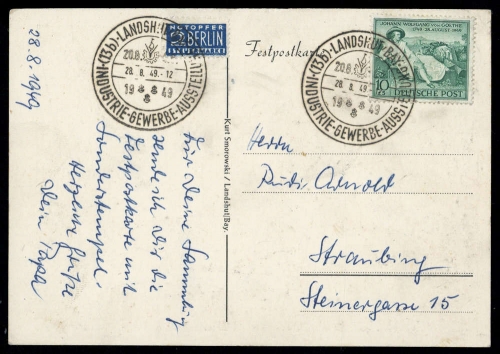 28.8.1949
(13b) LANDSHUT
INDUSTRIE-GEWERBE-AUSSTELLUNG
28. 8. 49.-12
1949
NOTOPFER
2 BERLIN
STEUERMARKE
Festpostkarte
(13b) LANDSHUT (BAY.)
INDUSTRIE-GEWERBE-AUSSTELLUNG
28. 8. 49
1949
JOHANN WOLFGANG VON GOETHE
1749 · 28. AUGUST · 1949
10
DEUTSCHE POST
Für Deine Sammlung
sende ich Dir die
Festpostkarte mit
Sonderstempel.
Herzliche Grüße
Dein Papa
Kurt Smorowski / Landshut/Bay.
Herrn
Rudi Arnold
Straubing
Steinergasse 15